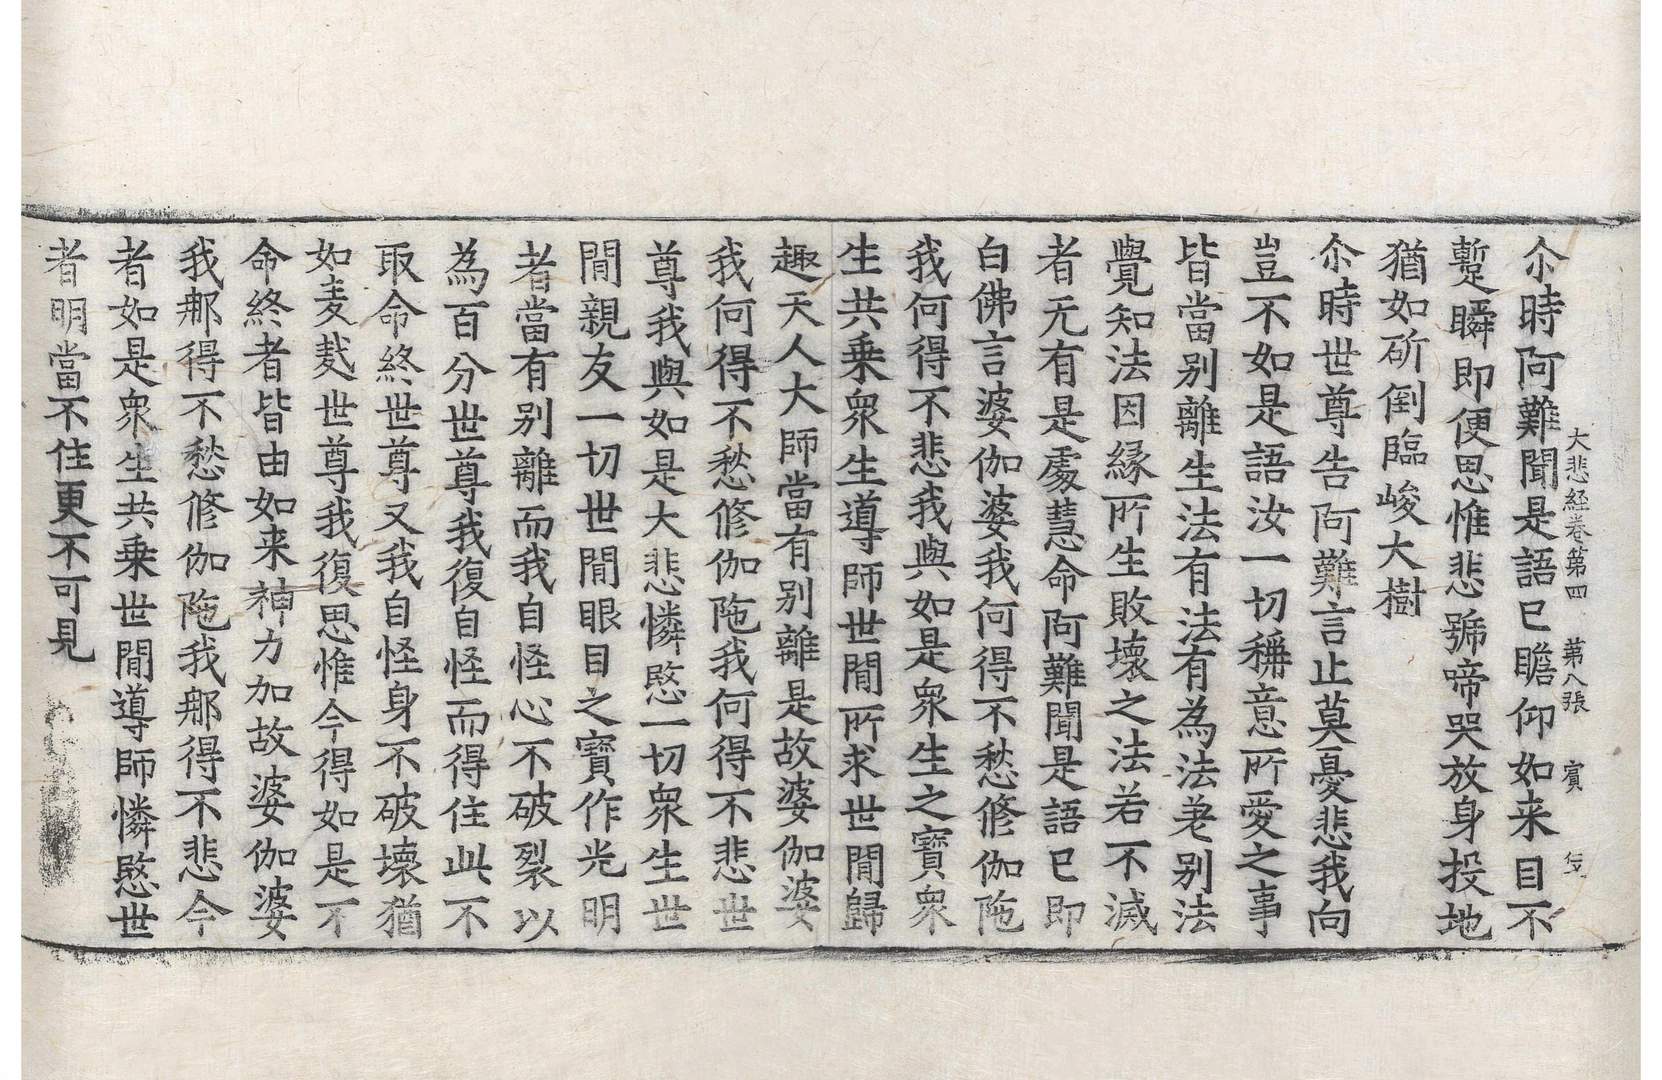 大悲経卷第四　第八張　賓
尒時阿難聞是語已瞻仰如来目不
蹔瞬即便思惟悲號啼哭放身投地
猶如斫倒臨峻大樹
尒時世尊告阿難言止莫憂悲我向
豈不如是語汝一切稱意所愛之事
皆當别離生法有法有為法老别法
覺知法因緣所生敗壞之法若不滅
者无有是處慧命阿難聞是語已即
白佛言婆伽婆我何得不愁修伽陁
我何得不悲我與如是衆生之寶衆
生共乘衆生導師世閒所求世閒歸
趣天人大師當有别離是故婆伽婆
我何得不愁修伽陁我何得不悲世
尊我與如是大悲憐愍一切衆生世
閒親友一切世閒眼目之寶作光明
者當有别離而我自怪心不破裂以
為百分世尊我復自怪而得住此不
取命終世尊又我自怪身不破壞猶
如麦𪍿世尊我復思惟今得如是不
命終者皆由如来神力加故婆伽婆
我那得不愁修伽陁我那得不悲今
者如是衆生共乘世閒導師憐愍世
者明當不住更不可見